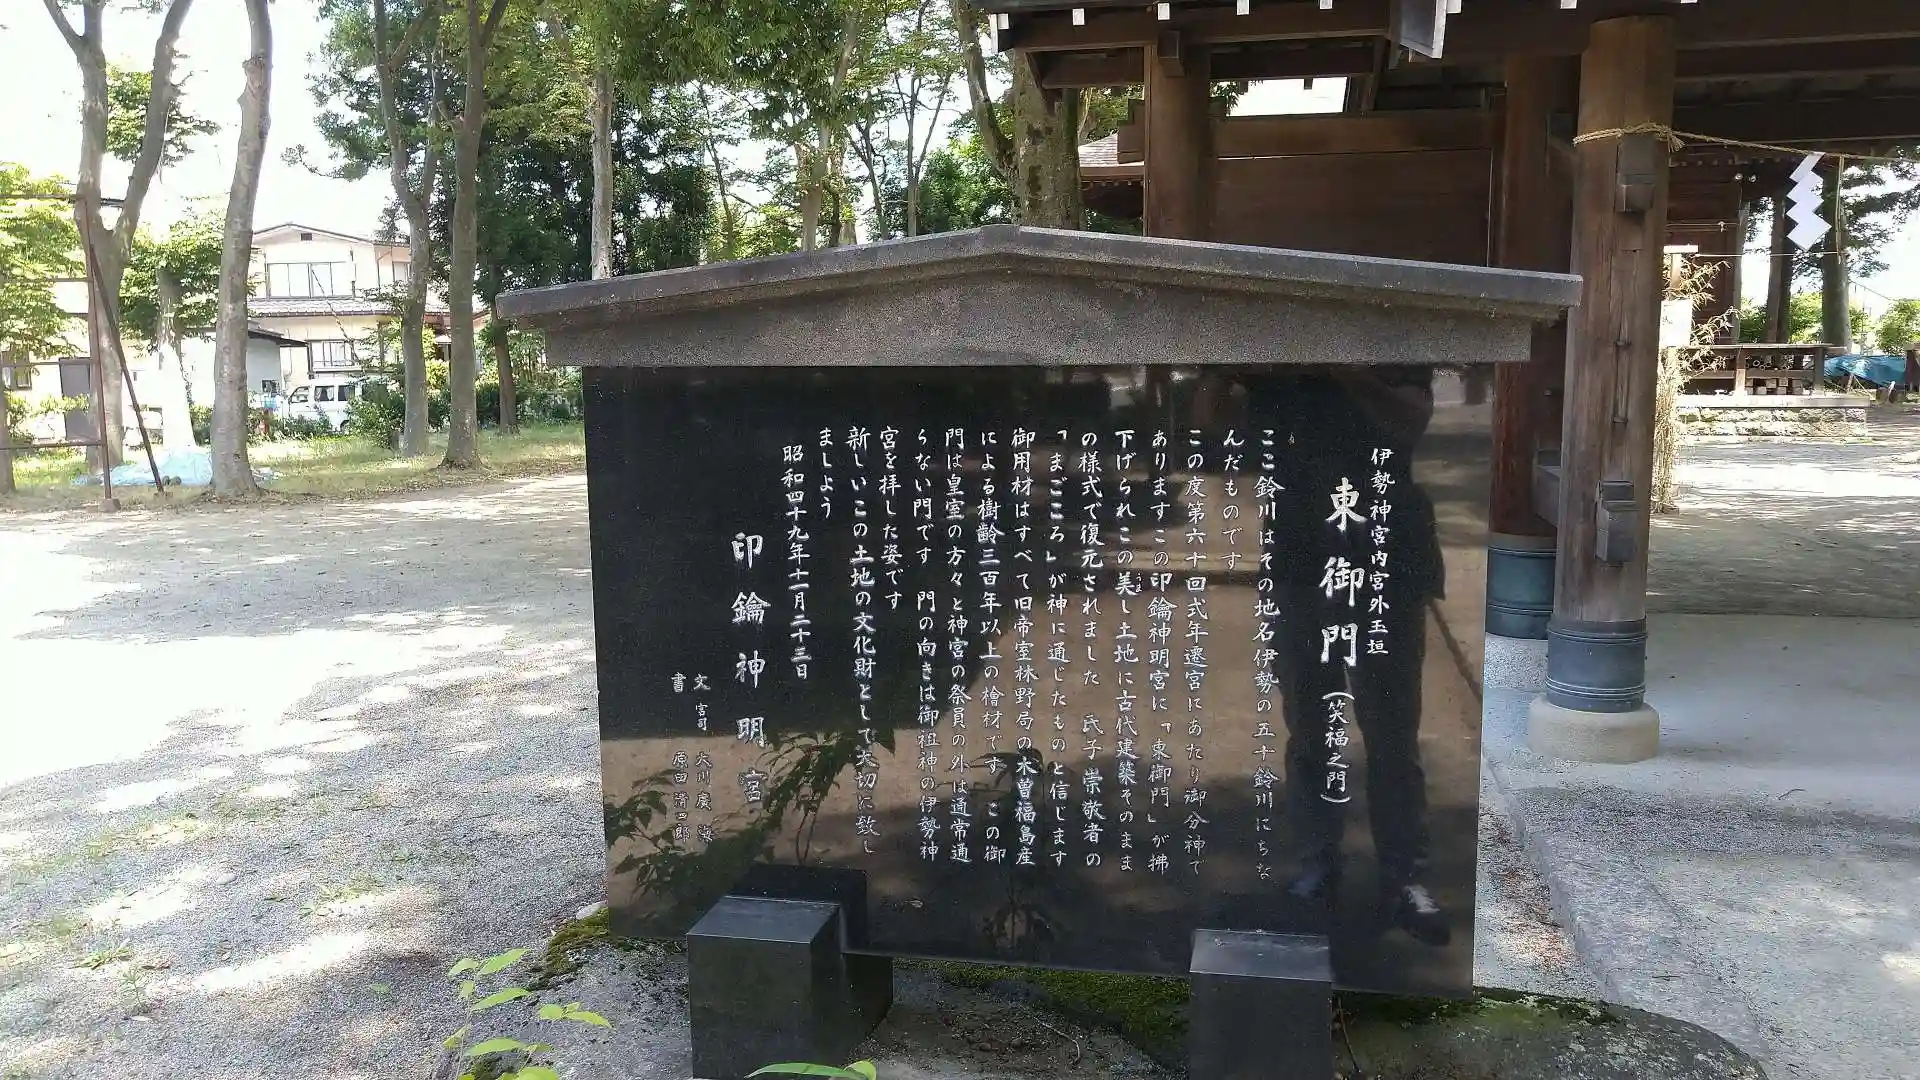 伊勢神宮内宮外玉垣
東御門(笑福之門)
ここ鈴川はその地名伊勢の五十鈴川にちな
んだものです
この度第六十回式年遷宮にあたり御分神で
ありますこの印鑰神明宮に「東御門」が拂
下げられこの美し土地に古代建築そのまま
の様式で復元されました 氏子崇敬者の
「まごころ」が神に通じたものと信じます
御用材はすべて旧帝室林野局の木曽福島産
による樹齢三百年以上の檜材です この御
門は皇室の方々と神宮の祭員の外は通常通
らない門です 門の向きは御祖神の伊勢神
宮を拝した姿です
新しいこの土地の文化財として大切に致し
ましよう
昭和四十九年十一月二十三日
印鑰神明宮
文 宮司 大川廣海
書 原田清四郎